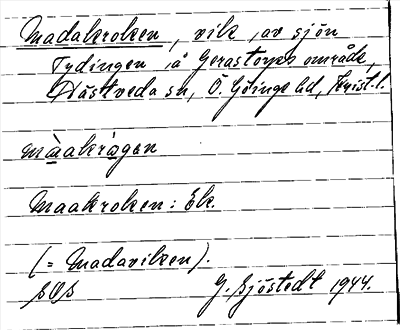 Madakroken, vik, av sjön
Tydingen, å Gerastorps område,
Hästveda sn, Ö. Göinge hd, Krist. l.
màakrågan
Maakroken: Ek.
(= Madaviken).
G. Sjöstedt 1944.